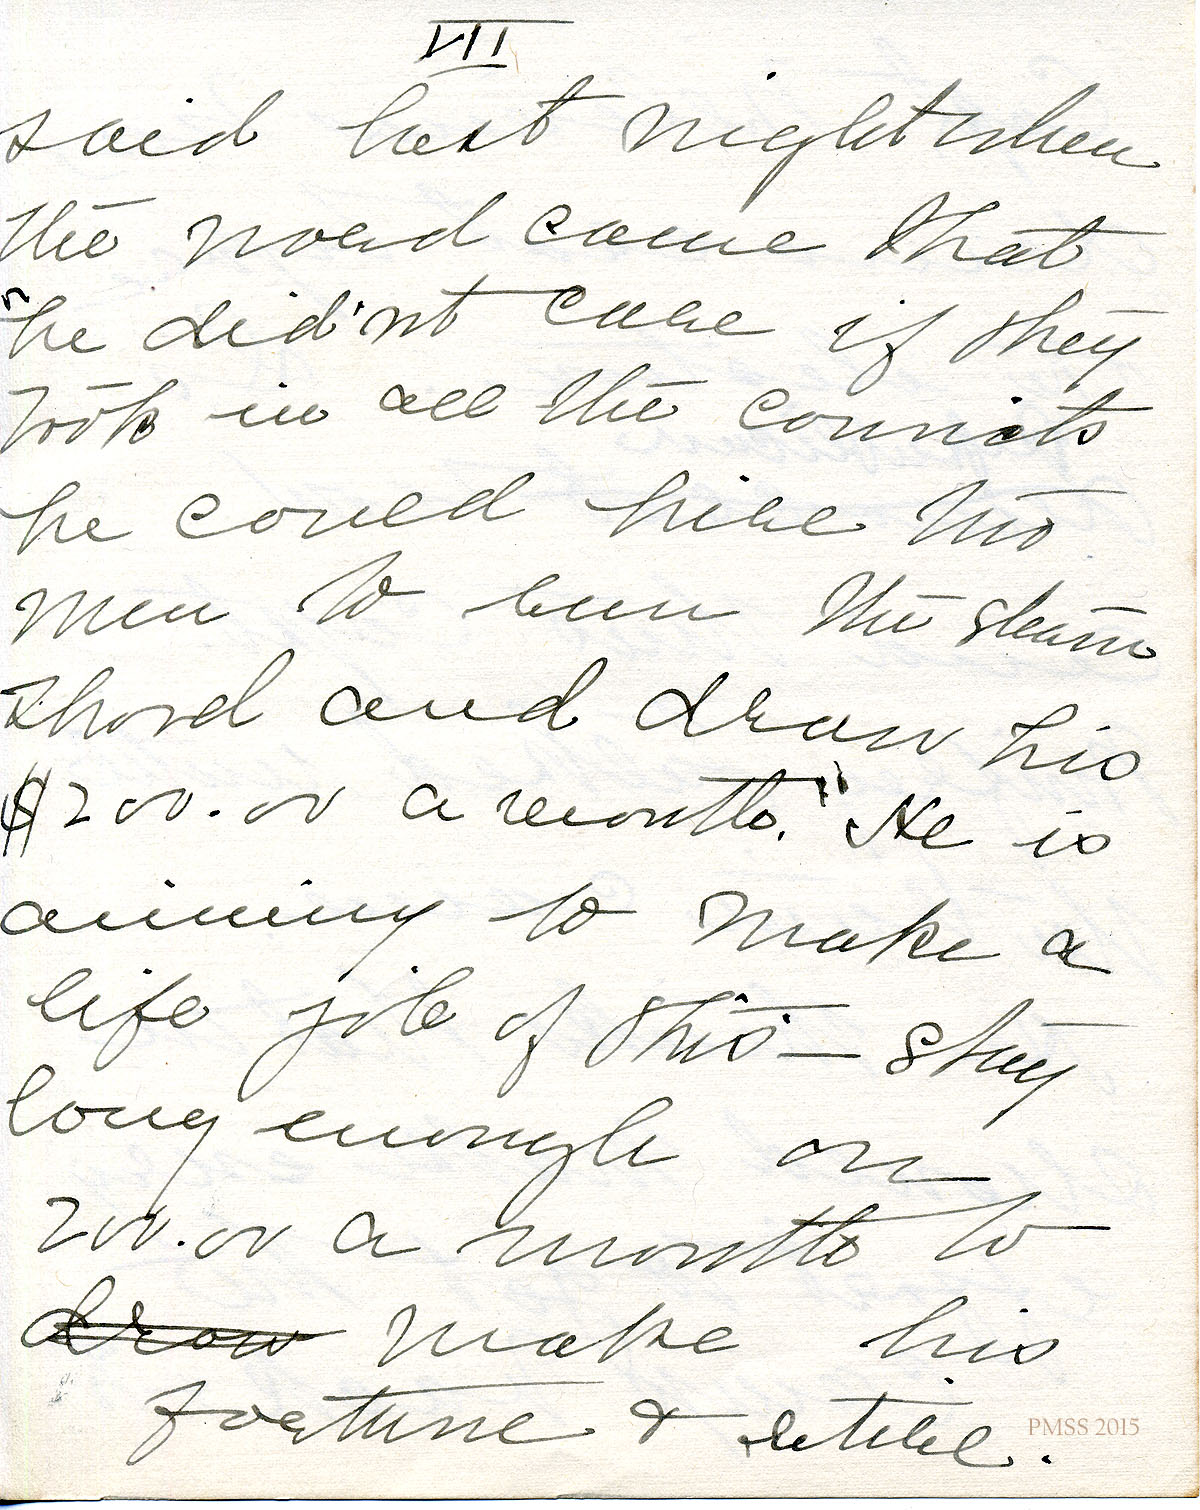 VII
said last night when
the word came that
"he did'nt care if they
took in all the convicts
he could hire two
men to run the steam
shovel and draw his
$200.00 a month." He is
aiming to make a
life job of this — stay
long enough on
200.00 a month to
draw make his
fortune & retire.
PMSS 2015